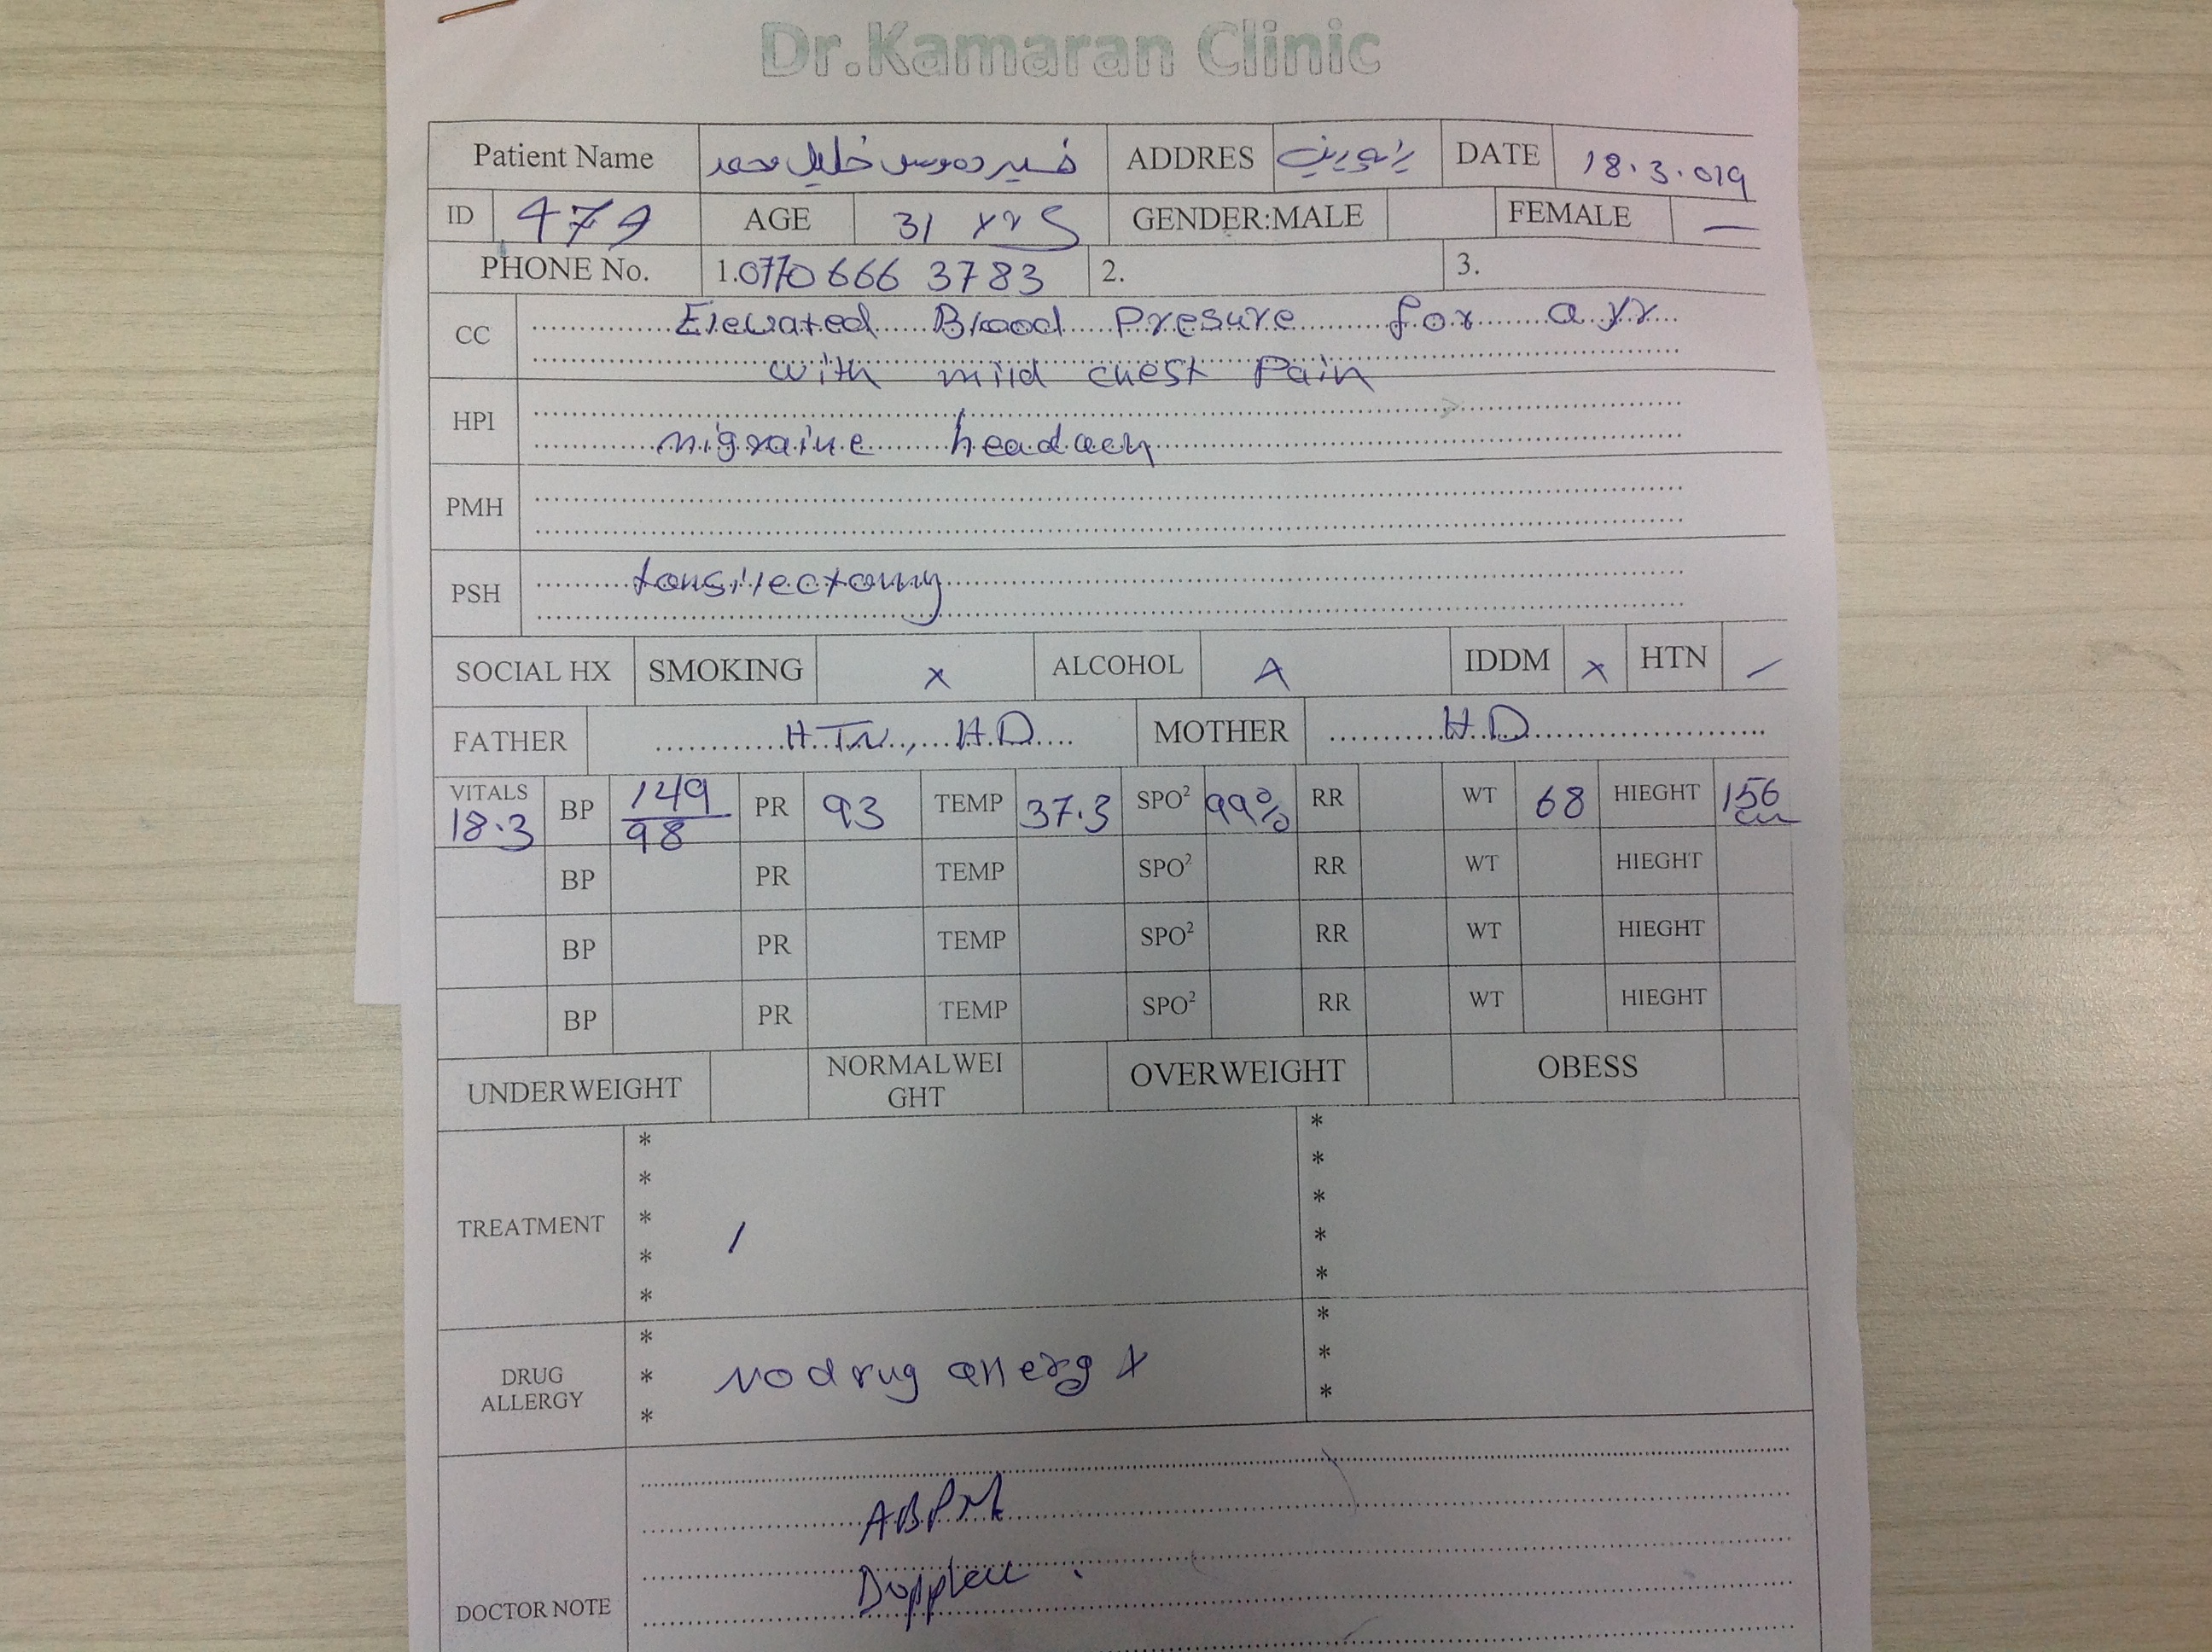 Dr.Kamaran Clinic
Patient Name خليل محمد ADDRES DATE 18.3.019
ID AGE 31 yrs GENDER:MALE FEMALE —
PHONE No. 1.0770 666 3783 2. 3.
CC Elevated Blood Presure for a yr
with mild chest Pain
HPI
migraine headach
PMH
PSH tonsilectomy
SOCIAL HX SMOKING x ALCOHOL x IDDM x HTN /
FATHER HTN, H.D MOTHER H.D
VITALS 18.3 BP 149/98 PR 93 TEMP 37.3 SPO² 99% RR WT 68 HIEGHT 156 cm
BP PR TEMP SPO² RR WT HIEGHT
BP PR TEMP SPO² RR WT HIEGHT
BP PR TEMP SPO² RR WT HIEGHT
UNDERWEIGHT NORMALWEI OVERWEIGHT OBESS
GHT
* *
* *
TREATMENT * / *
* *
* *
* *
DRUG * No drug allergy *
ALLERGY * *
ABPM
DOCTOR NOTE Doppler